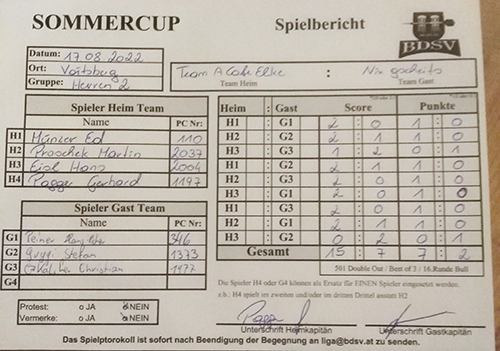 SOMMERCUP
Spielbericht
BDSV
Datum: 17.08.2022
Ort: Voitsberg
Gruppe: Herren 2
Team A Cafe Elke : Nix gscheits
Team Heim Team Gast
Spieler Heim Team
Name PC Nr:
H1 Münzer Ed 110
H2 Proschek Martin 2037
H3 Hans 2004
H4 Pagger Gerhard 1197
Spieler Gast Team
Name PC Nr:
G1 346
G2 Guggi Stefan 1373
G3 Christian 1977
G4
Heim : Gast Score Punkte
H1 : G1 2 : 0 1 : 0
H2 : G2 2 : 1 1 : 0
H3 : G3 1 : 2 0 : 1
H1 : G2 2 : 1 1 : 0
H2 : G3 2 : 0 1 : 0
H3 : G1 2 : 0 1 : 0
H1 : G3 2 : 0 1 : 0
H2 : G1 2 : 1 1 : 0
H3 : G2 0 : 2 0 : 1
Gesamt 15 : 7 7 : 2
501 Double Out / Best of 3 / 16.Runde Bull
Die Spieler H4 oder G4 können als Ersatz für EINEN Spieler eingesetzt werden.
z.b.: H4 spielt im zweiten und/oder im dritten Drittel anstatt H2
Protest: JA NEIN
Vermerke: JA NEIN
Pagger
Unterschrift Heimkapitän Unterschrift Gastkapitän
Das Spielprotokoll ist sofort nach Beendigung der Begegnung an liga@bdsv.at zu senden.